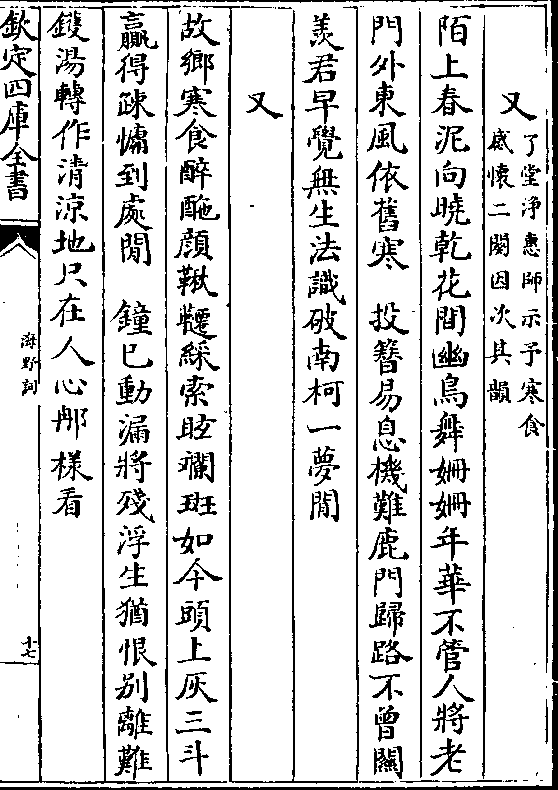 又 了堂淨惠師示予寒食
感懷二闋因次其韻
陌上春泥向曉乾花間幽鳥舞姍姍年華不管人將老
門外東風依舊寒　投簪易息機難鹿門歸路不曾關
羨君早覺無生法識破南柯一夢間
又
故鄉寒食醉酡顔鞦韆綵索眩斕斑如今頭上灰三斗
贏得踈慵到處閒　鐘已動漏將殘浮生猶恨别離難
鑊湯轉作清涼地只在人心那樣看
欽定四庫全書
海野詞
十七